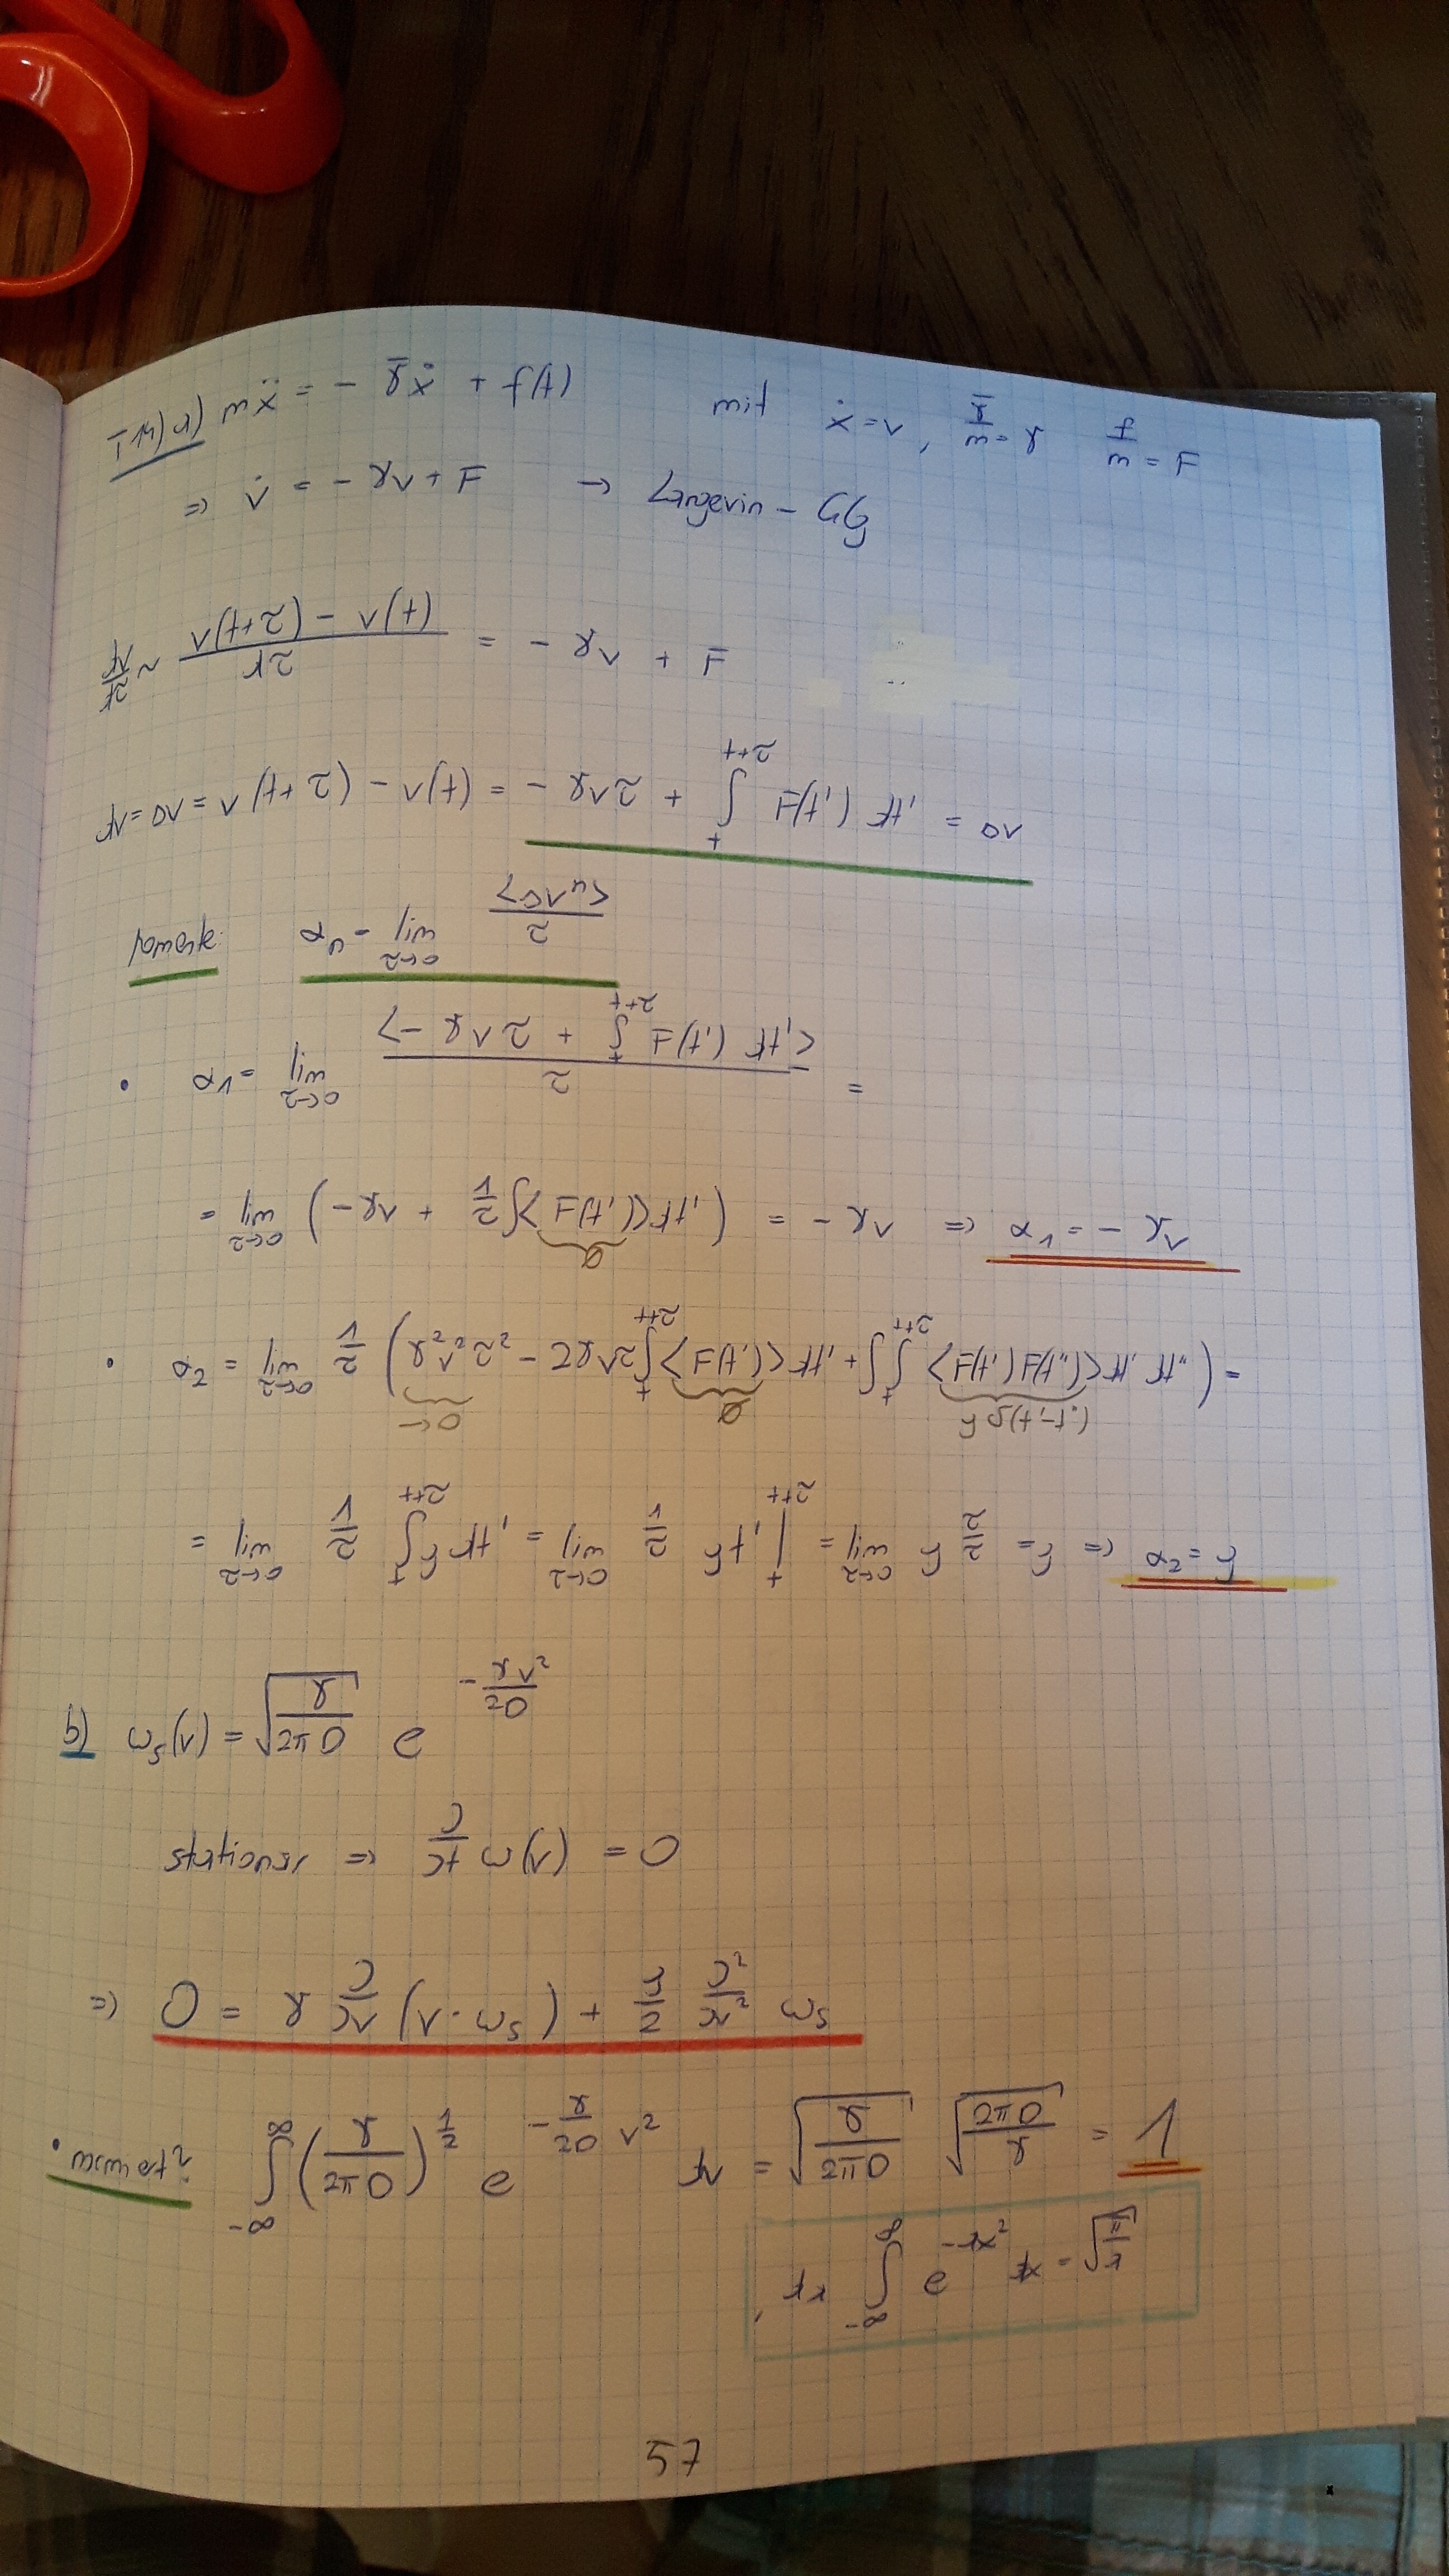 m\ddot{x} = - \bar{γ}\dot{x} + f(t) mit \dot{x} = v, \frac{\bar{γ}}{m} = γ \frac{f}{m} = F
⇒ \dot{v} = - γv + F → Langevin - GG
\frac{dv}{dτ} ~ \frac{v(t+τ) - v(t)}{dτ} = - γv + F
dv = Δv = v(t+τ) - v(t) = - γvτ + ∫_t^{t+τ} F(t') dt' = Δv
α_n = lim_{τ→0} \frac{<Δv^n>}{τ}
• α_1 = lim_{τ→0} \frac{<- γvτ + ∫_t^{t+τ} F(t') dt'>}{τ} =
= lim_{τ→0} (-γv + \frac{1}{τ} ∫ <F(t')> dt') = - γv ⇒ α_1 = - γv
0
• α_2 = lim_{τ→0} \frac{1}{τ} (γ²v²τ² - 2γvτ ∫_t^{t+τ} <F(t')> dt' + ∫∫_t^{t+τ} <F(t') F(t'')> dt' dt'') =
→0 0 yδ(t'-t'')
= lim_{τ→0} \frac{1}{τ} ∫_t^{t+τ} y dt' = lim_{τ→0} \frac{1}{τ} yt' |_t^{t+τ} = lim_{τ→0} y \frac{τ}{τ} = y ⇒ α_2 = y
b) ω_s(v) = \sqrt{\frac{γ}{2πD}} e^{-\frac{γv²}{2D}}
stationär ⇒ \frac{∂}{∂t} ω(v) = 0
⇒ 0 = γ \frac{∂}{∂v} (v · ω_s) + \frac{y}{2} \frac{∂²}{∂v²} ω_s
• ∫_{-∞}^{∞} (\frac{γ}{2πD})^{\frac{1}{2}} e^{-\frac{γ}{2D} v²} dv = \sqrt{\frac{γ}{2πD}} \sqrt{\frac{2πD}{γ}} = 1
∫_{-∞}^{∞} e^{-λx²} dx = \sqrt{\frac{π}{λ}}
57